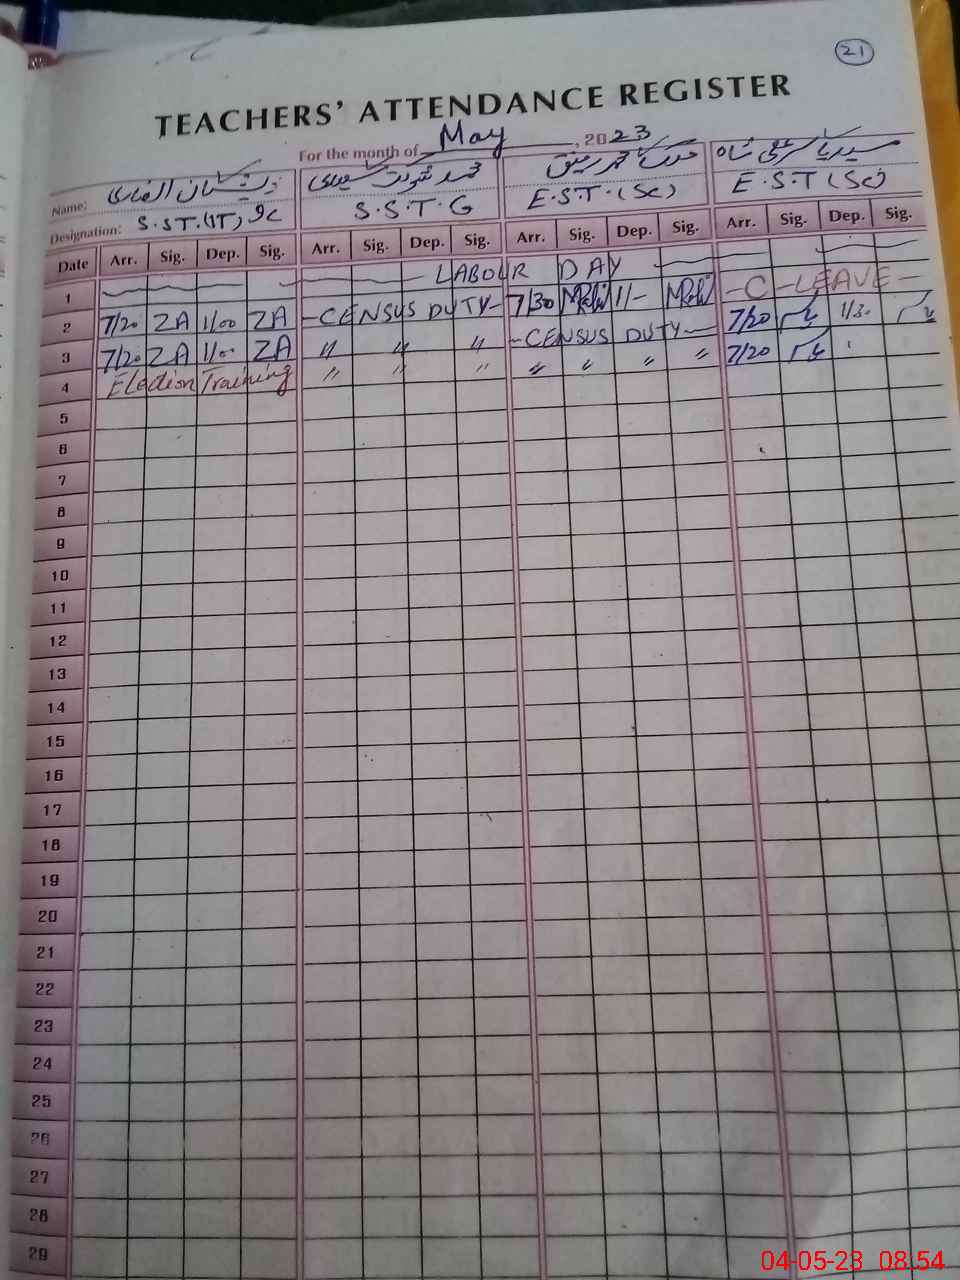 21
TEACHERS' ATTENDANCE REGISTER
For the month of May, 2023
Name: محمد شاہ
Designation: S.S.T.(IT) S.S.T.G E.S.T.(Sc) E.S.T(Sc)
Date Arr. Sig. Dep. Sig. Arr. Sig. Dep. Sig. Arr. Sig. Dep. Sig. Arr. Sig. Dep. Sig.
1 LABOUR DAY
2 7/20 ZA 1/00 ZA -CENSUS DUTY- 7/30 1/- -C-LEAVE-
3 7/20 ZA 1/00 ZA 〃 〃 〃 -CENSUS DUTY- 7/20 1/30
4 Election Training 〃 〃 〃 〃 〃 〃 〃 7/20
5
6
7
8
9
10
11
12
13
14
15
16
17
18
19
20
21
22
23
24
25
26
27
28
29
04-05-23 08:54